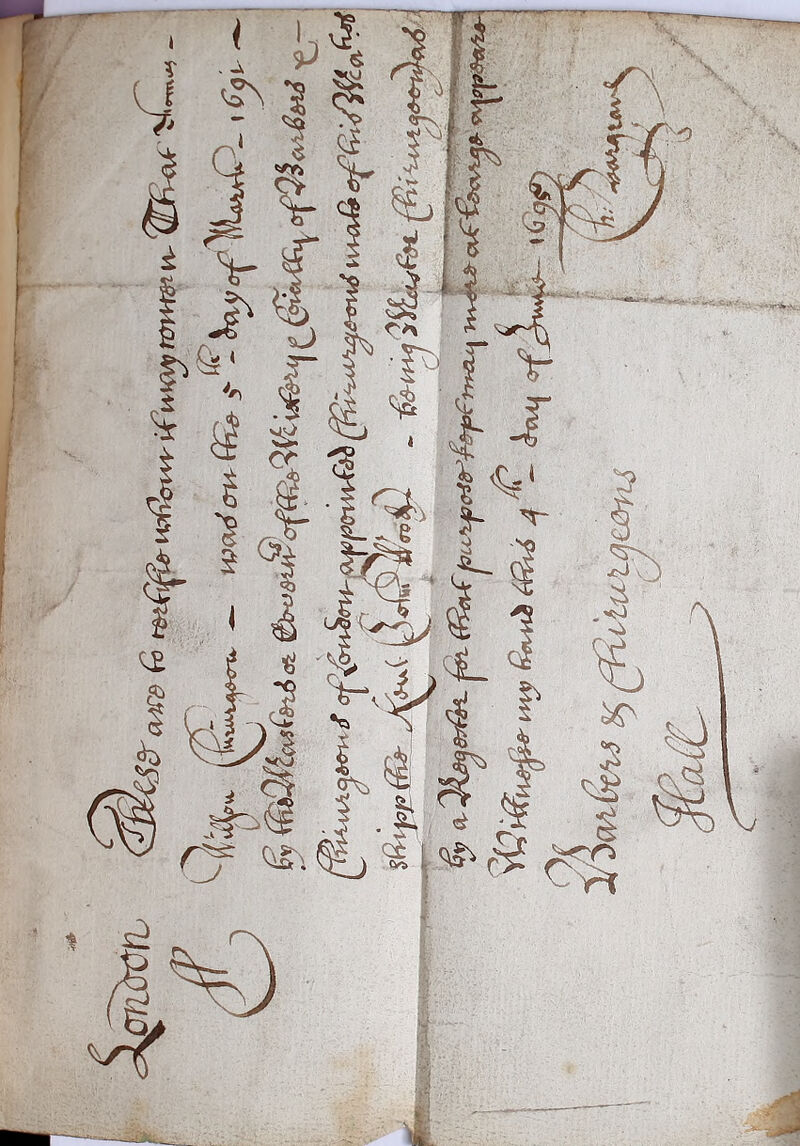 London
ss
These are to certifie whom it may concern That Thomas -
Willson Chirurgeon - was on the 5th - day of March - 1691 -
by the Masters or Govern:rs of the Mistery & Cõialty of Barbers & -
Chirurgeons of London appointed Chirurgeons mate of his Maties
shipp the Kent John Wood - being Master Chirurgeon as
by a Regester for that purpose kept may more at Large appeare
Wittnesse my hand this 4th - day of June - 1695
Ch: Hargrave
Barbers & Chirurgeons
Hall